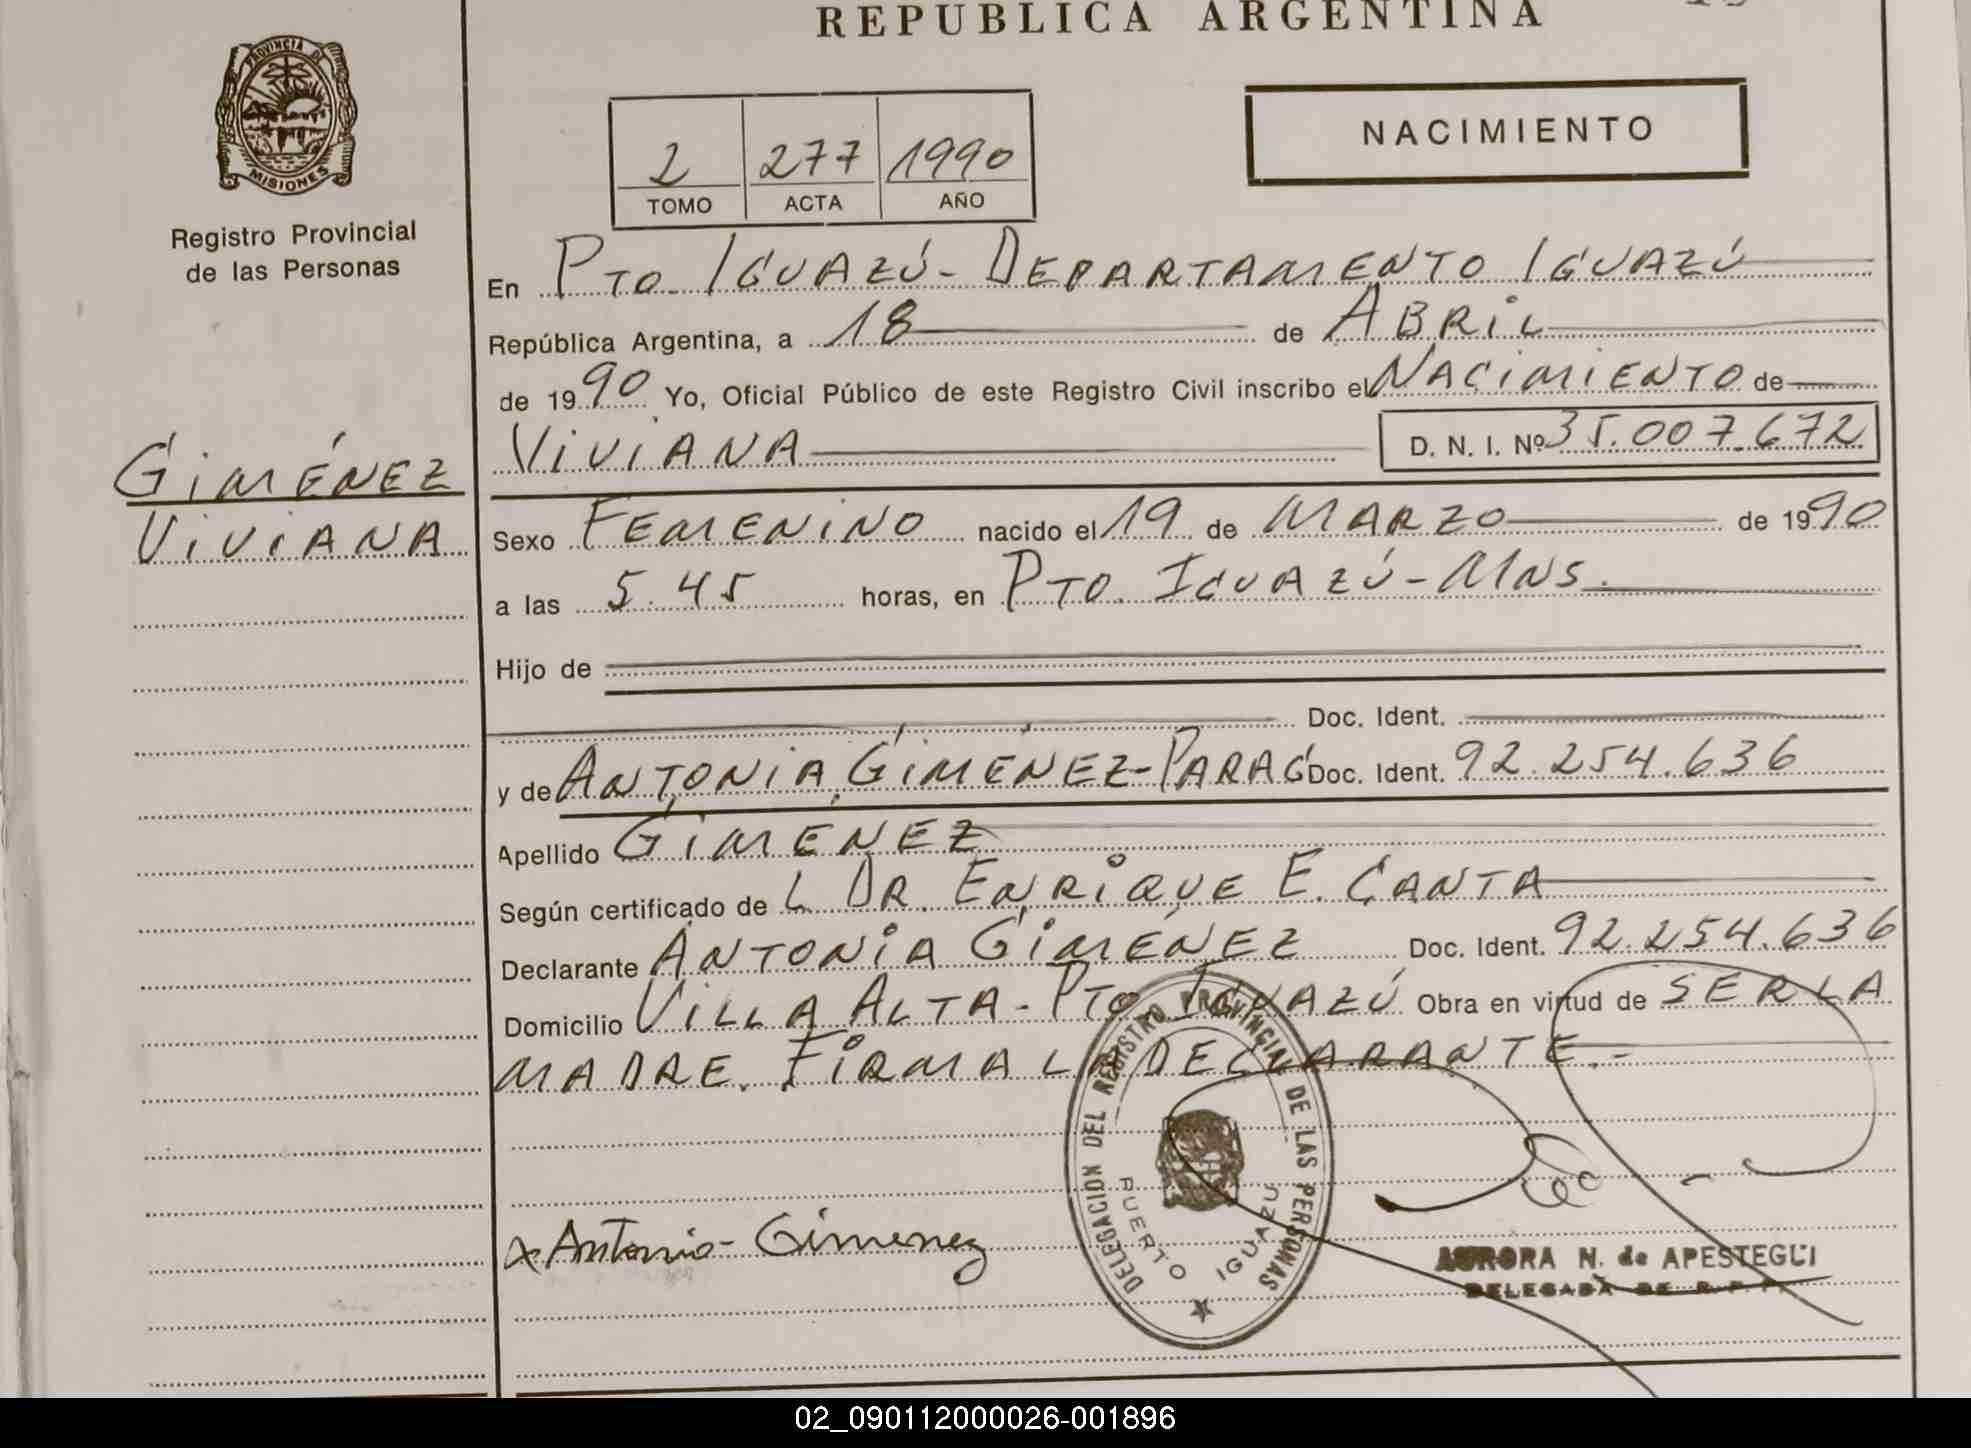 REPUBLICA ARGENTINA
PROVINCIA DE
MISIONES
Registro Provincial
de las Personas
2 277 1990
TOMO ACTA AÑO
NACIMIENTO
En Pto. IGUAZÚ - DEPARTAMENTO IGUAZÚ
República Argentina, a 18 de ABRIL
de 1990 Yo, Oficial Público de este Registro Civil inscribo el NACIMIENTO de
GIMÉNEZ
VIVIANA
VIVIANA D. N. I. Nº 35.007.672
Sexo FEMENINO nacido el 19 de MARZO de 1990
a las 5.45 horas, en PTO. IGUAZÚ - MNS.
Hijo de
Doc. Ident.
y de ANTONIA GIMÉNEZ - PARAG Doc. Ident. 92.254.636
Apellido GIMENEZ
Según certificado de L DR. ENRIQUE E. CANTA
Declarante ANTONIA GIMÉNEZ Doc. Ident. 92.254.636
Domicilio VILLA ALTA - PTO IGUAZÚ Obra en virtud de SER LA
MADRE. FIRMA LA DECLARANTE.-
DELEGACION DEL REGISTRO PROVINCIAL DE LAS PERSONAS
PUERTO IGUAZU
x Antonia - Gimenez
AURORA N. de APESTEGUI
DELEGADA DE R.P.P.
02_090112000026-001896